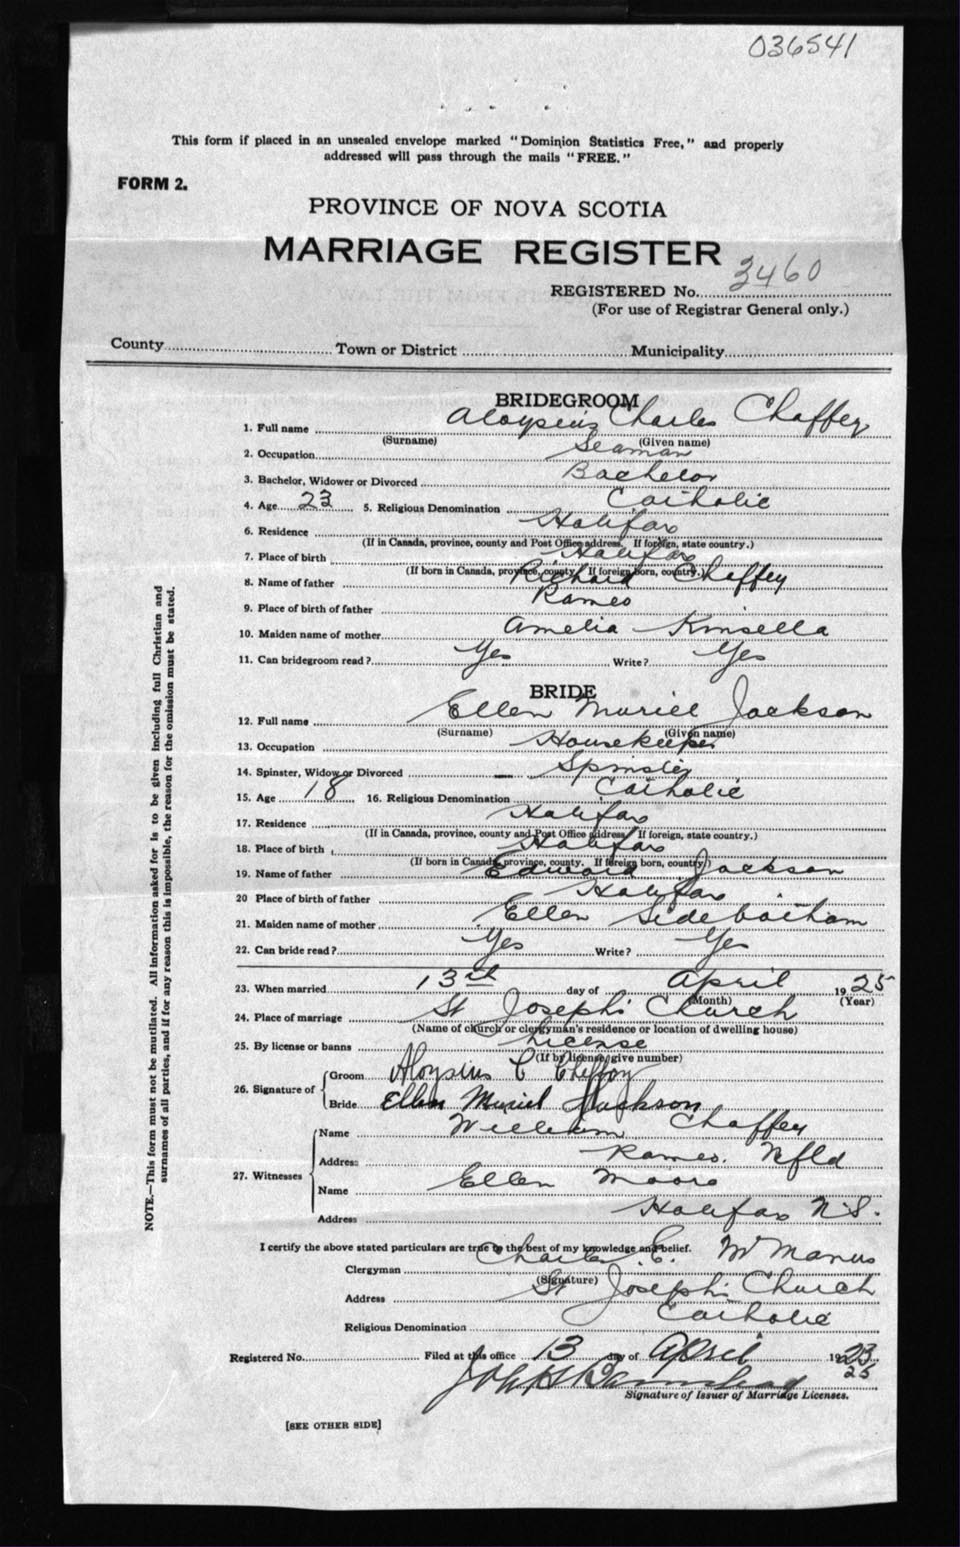 036541
This form if placed in an unsealed envelope marked "Dominion Statistics Free," and properly
addressed will pass through the mails "FREE."
FORM 2.
PROVINCE OF NOVA SCOTIA
MARRIAGE REGISTER
REGISTERED No. 3460
(For use of Registrar General only.)
County Town or District Municipality
BRIDEGROOM
1. Full name Aloysius Charles Chaffey
(Surname) (Given name)
2. Occupation Seaman
3. Bachelor, Widower or Divorced Bachelor
4. Age 23 5. Religious Denomination Catholic
6. Residence Halifax
(If in Canada, province, county and Post Office address. If foreign, state country.)
7. Place of birth Halifax
(If born in Canada, province, county. If foreign born, country.)
8. Name of father Richard Chaffey
9. Place of birth of father Rameo
10. Maiden name of mother Amelia Kinsella
11. Can bridegroom read? Yes Write? Yes
BRIDE
12. Full name Ellen Muriel Jackson
(Surname) (Given name)
13. Occupation Housekeeper
14. Spinster, Widow or Divorced Spinster
15. Age 18 16. Religious Denomination Catholic
17. Residence Halifax
(If in Canada, province, county and Post Office address. If foreign, state country.)
18. Place of birth Halifax
(If born in Canada, province, county. If foreign born, country.)
19. Name of father Edward Jackson
20 Place of birth of father Halifax
21. Maiden name of mother Ellen Sidebotham
22. Can bride read? Yes Write? Yes
23. When married 13th day of April 1925
(Month) (Year)
24. Place of marriage St Joseph's Church
(Name of church or clergyman's residence or location of dwelling house)
25. By license or banns License
(If by license, give number)
26. Signature of Groom Aloysius C Cheffoy
Bride Ellen Muriel Jackson
27. Witnesses Name William Chaffey
Address Rameo. Nfld
Name Ellen Moore
Address Halifax N.S.
I certify the above stated particulars are true to the best of my knowledge and belief.
Clergyman Charles E. McManus
(Signature)
Address St Joseph's Church
Religious Denomination Catholic
Registered No. Filed at this office 13 day of April 1923
25
Signature of Issuer of Marriage Licenses.
[SEE OTHER SIDE]
NOTE.—This form must not be mutilated. All information asked for is to be given including full Christian and
surnames of all parties, and if for any reason this is impossible, the reason for the omission must be stated.